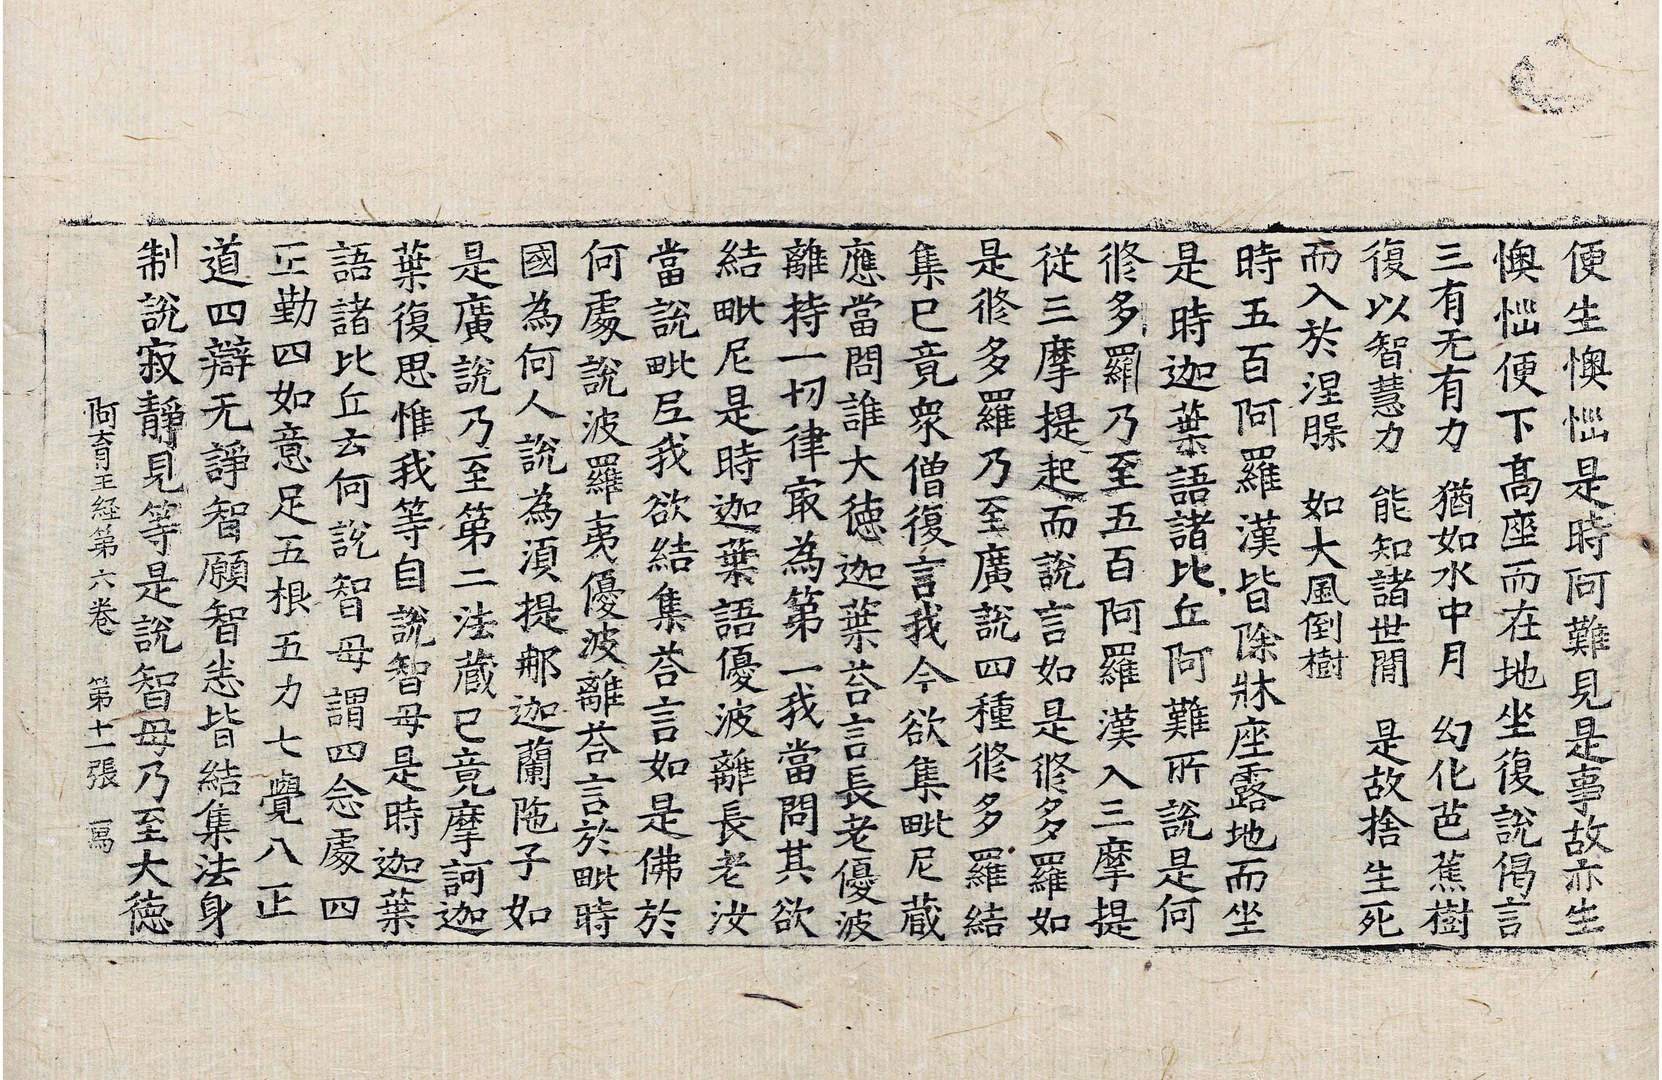 便生懊惱是時阿難見是事故亦生
懊惱便下高座而在地坐復說偈言
三有无有力　猶如水中月　幻化芭蕉樹
復以智慧力　能知諸世閒　是故捨生死
而入於涅槃　如大風倒樹
時五百阿羅漢皆除牀座露地而坐
是時迦葉語諸比丘阿難所說是何
修多羅乃至五百阿羅漢入三摩提
從三摩提起而說言如是修多羅如
是修多羅乃至廣說四種修多羅結
集已竟衆僧復言我今欲集毗尼蔵
應當問誰大徳迦葉荅言長老優波
離持一切律㝡為第一我當問其欲
結毗尼是時迦葉語優波離長老汝
當說毗尼我欲結集荅言如是佛於
何處說波羅夷優波離荅言於毗時
國為何人說為湏提那迦蘭陁子如
是廣說乃至第二法蔵已竟摩訶迦
葉復思惟我等自說智母是時迦葉
語諸比丘云何說智母謂四念處四
正勤四如意足五根五力七覺八正
道四辯无諍智願智悉皆結集法身
制說寂靜見等是說智母乃至大徳
阿育王経第六卷　第十一張　寫